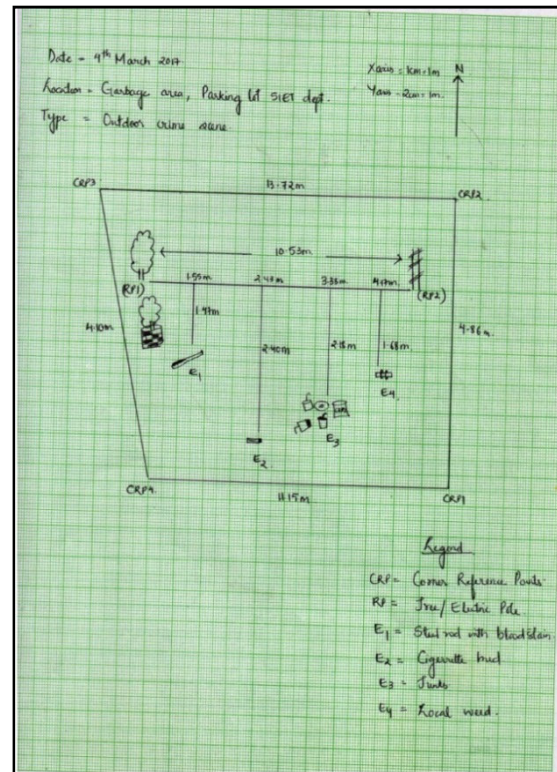 Date - 4th March 2017.
Location - Garbage area, Parking lot SIET dept.
Type = Outdoor crime scene.
X axis = 1cm = 1m
Y axis = 2cm = 1m.
N
CRP3
13.72m
CRP2
10.53m
(RP1)
1.55m
2.40m
3.38m
(RP2)
4.10m
1.97m
2.40m
2.18m
1.68m.
4.86m
E1
E4
E2
E3
CRP4
11.15m
CRP1
Legend
CRP = Corner Reference Points
RP = Tree/Electric Pole
E1 = Steel rod with bloodstain.
E2 = Cigerrette bud
E3 =
E4 = Local weed.